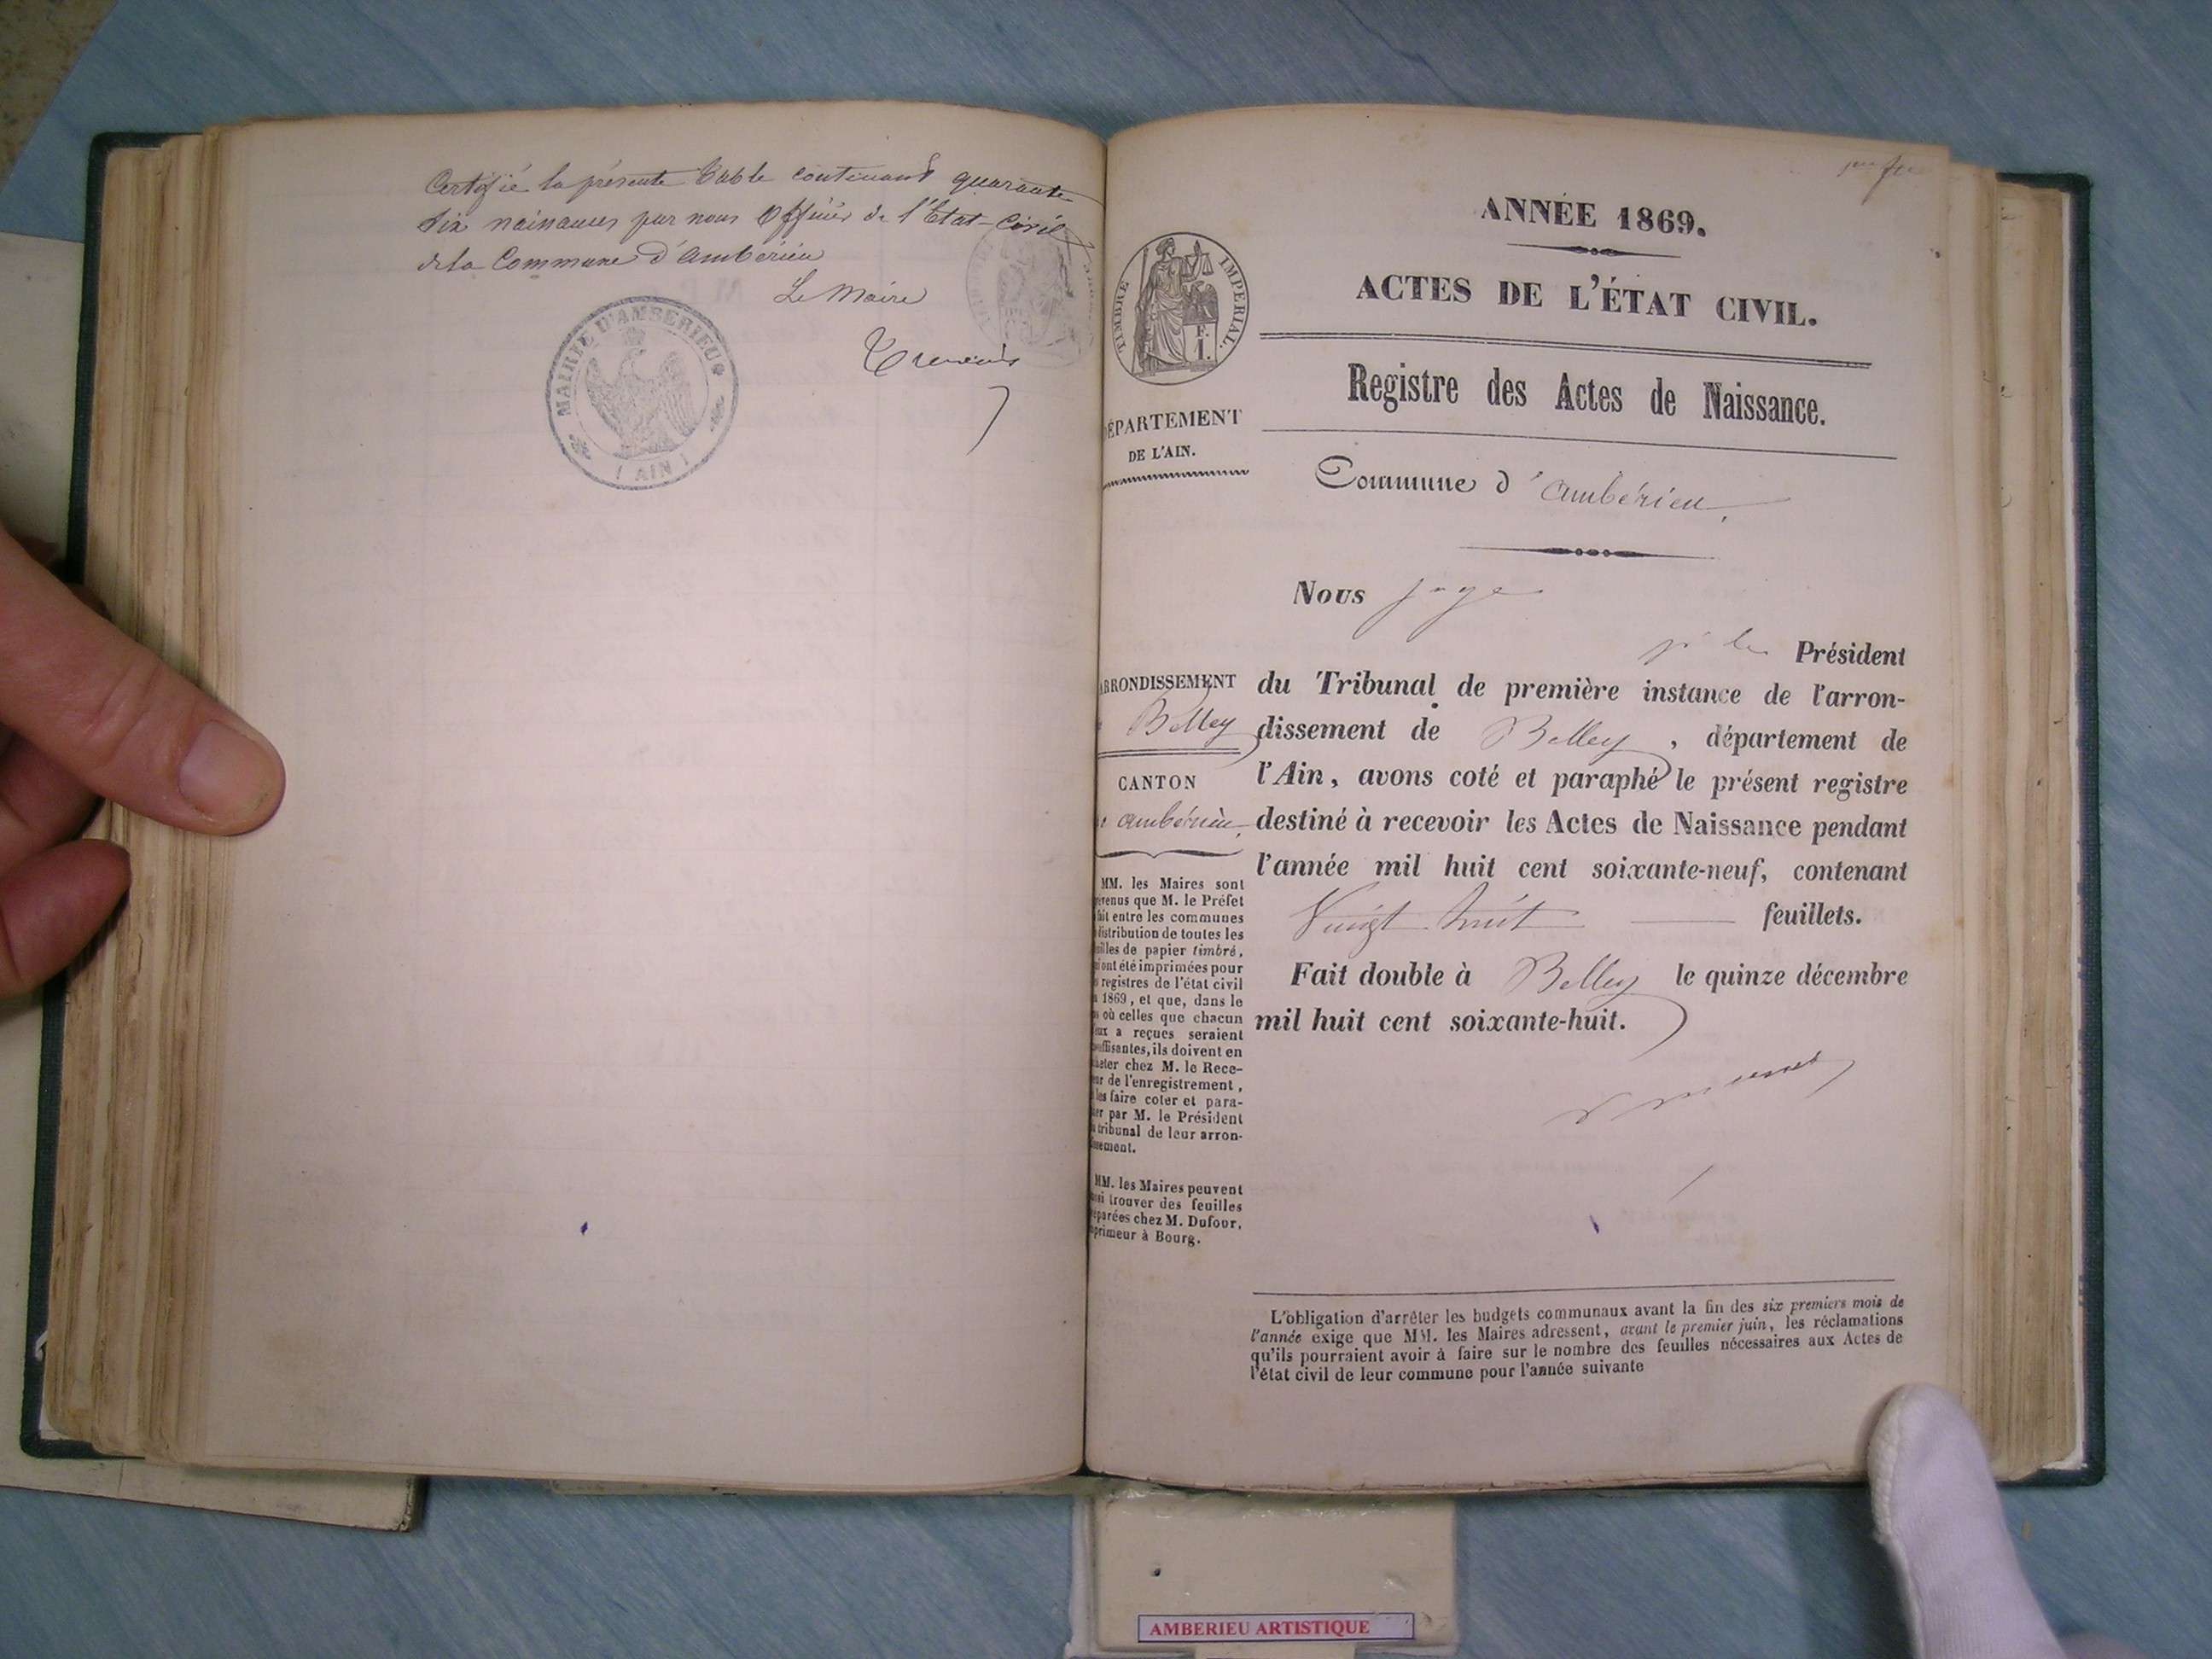 Certifié la présente Table contenant quarante
six naissances par nous Officier de l'Etat-Civil
de la Commune d'ambérieu
Le Maire
MAIRIE D'AMBERIEU
( AIN )
ANNÉE 1869.
ACTES DE L'ÉTAT CIVIL.
TIMBRE IMPERIAL.
F.
1.
Registre des Actes de Naissance.
ÉPARTEMENT
DE L'AIN.
Commune d'ambérieu.
Nous juge
Président
ARRONDISSEMENT
Belley
CANTON
ambérieu
du Tribunal de première instance de l'arron-
dissement de Belley, département de
l'Ain, avons coté et paraphé le présent registre
destiné à recevoir les Actes de Naissance pendant
l'année mil huit cent soixante-neuf, contenant
Vingt huit feuillets.
Fait double à Belley le quinze décembre
mil huit cent soixante-huit.
MM. les Maires sont
révenus que M. le Préfet
fait entre les communes
distribution de toutes les
uilles de papier timbré,
ui ont été imprimées pour
s registres de l'état civil
1869, et que, dans le
s où celles que chacun
'eux a reçues seraient
suffisantes, ils doivent en
heter chez M. le Rece-
ur de l'enregistrement,
les faire coter et para-
er par M. le Président
tribunal de leur arron-
issement.
MM. les Maires peuvent
ssi trouver des feuilles
éparées chez M. Dufour,
primeur à Bourg.
L'obligation d'arrêter les budgets communaux avant la fin des six premiers mois de
l'année exige que MM. les Maires adressent, avant le premier juin, les réclamations
qu'ils pourraient avoir à faire sur le nombre des feuilles nécessaires aux Actes de
l'état civil de leur commune pour l'année suivante
AMBERIEU ARTISTIQUE